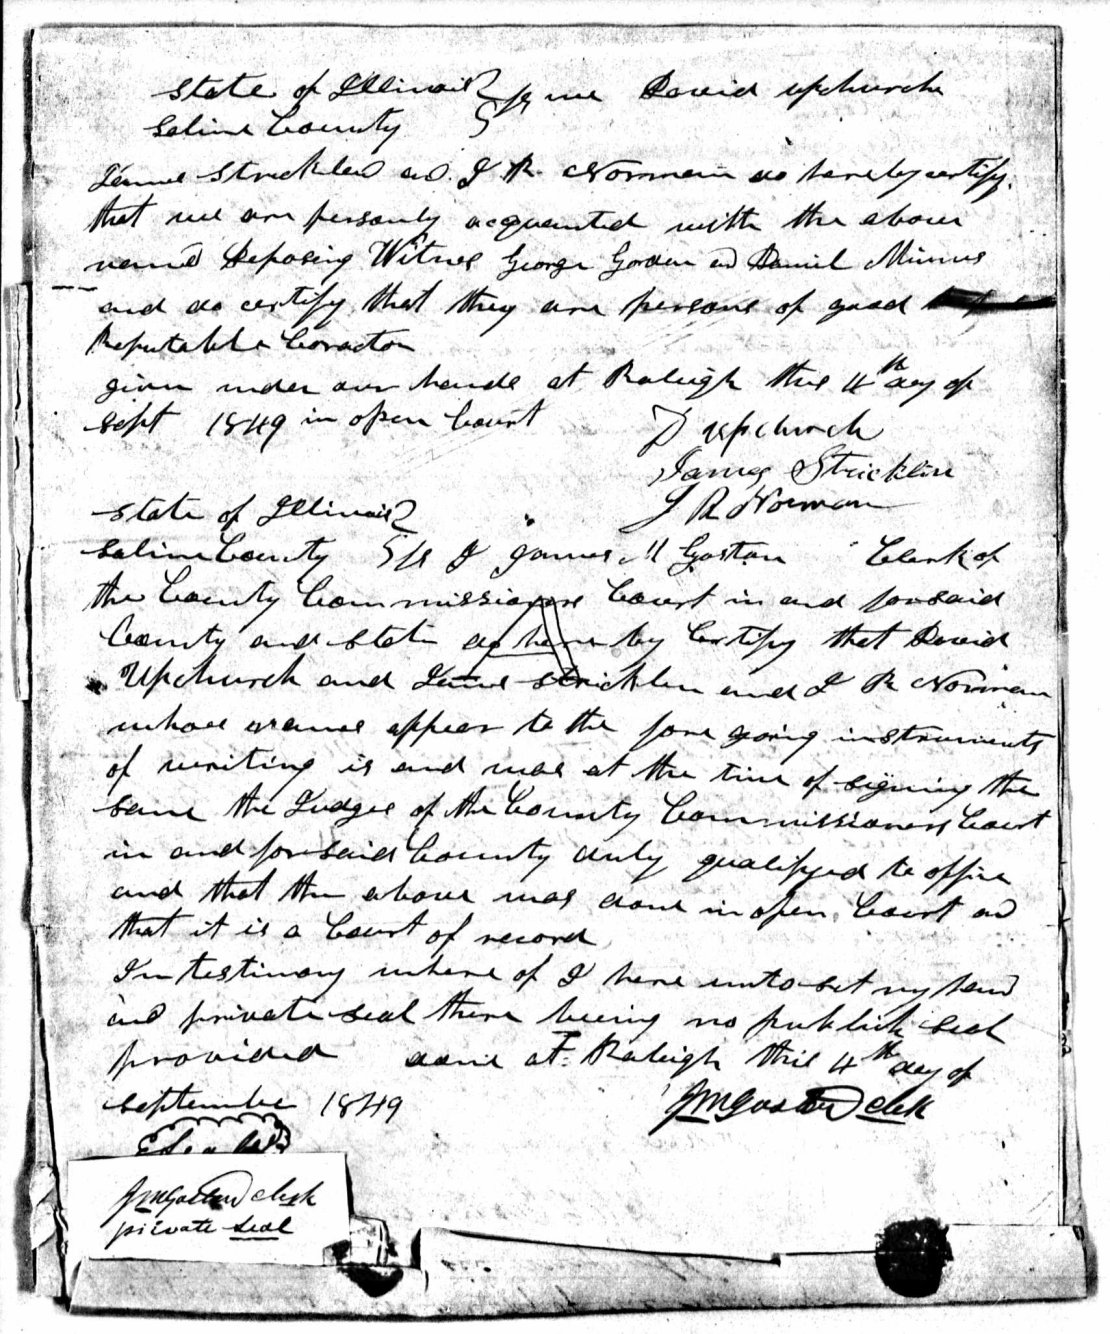 State of Illinois
Saline County } ss we David Upchurch
James Stricklen and J R Norman do hereby certify
that we are personly acquented with the above
named Deposing Witness George Gorden and Daniel Mimms
and do certify that they are persons of good
Reputable Coractor
given under our hands at Raleigh this 4th day of
Sept 1849 in open Court
D Upchurch
James Stricklin
J R Norman
State of Illinois
Saline County } ss I James M Gaston Clerk of
the County Commissioners Court in and for said
County and State do hereby Certify that David
Upchurch and James Stricklen and J R Norman
whose names appear to the fore going instruments
of writing is and was at the time of signing the
same the Judges of the County Commissioners Court
in and for said County duly qualifyed to office
and that the above was done in open Court and
that it is a Court of record
In testimony where of I here unto set my hand
and private seal there being no publick seal
provided done at Raleigh this 4th day of
September 1849
J M Gaston Clerk
J M Gaston clerk
private seal